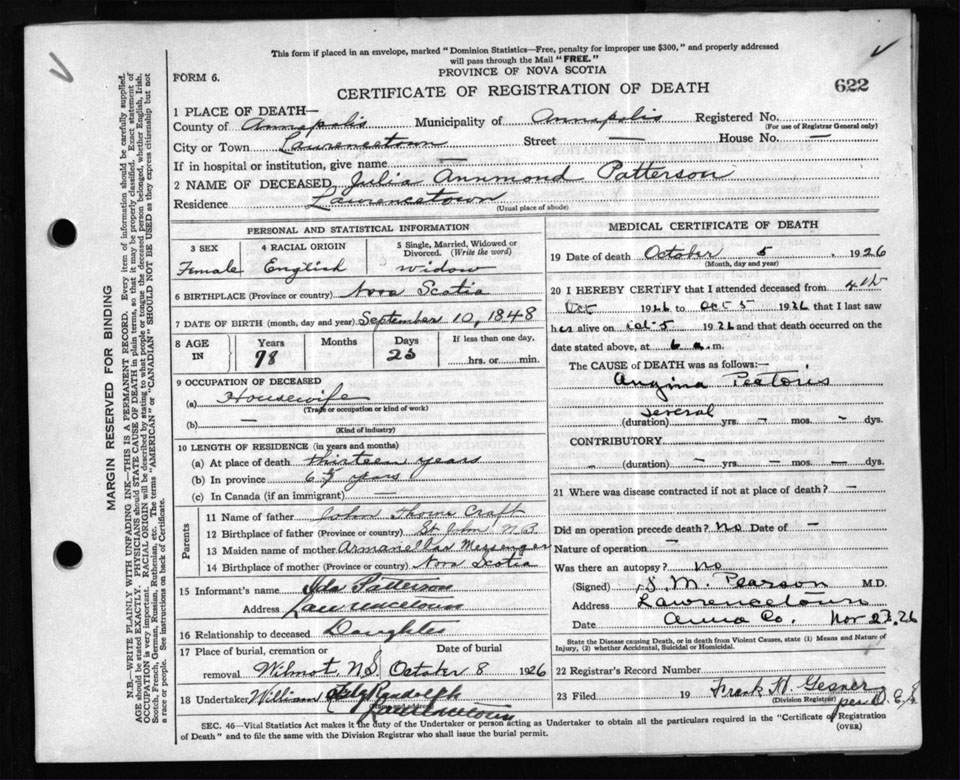 This form if placed in an envelope, marked "Dominion Statistics—Free, penalty for improper use $300," and properly addressed
will pass through the Mail "FREE."
FORM 6.
PROVINCE OF NOVA SCOTIA
CERTIFICATE OF REGISTRATION OF DEATH
622
1 PLACE OF DEATH—
County of Annapolis Municipality of Annapolis Registered No.
(For use of Registrar General only)
City or Town Lawrencetown Street — House No. —
If in hospital or institution, give name —
2 NAME OF DECEASED Julia Annmond Patterson
Residence Lawrencetown
(Usual place of abode)
PERSONAL AND STATISTICAL INFORMATION
3 SEX
Female
4 RACIAL ORIGIN
English
5 Single, Married, Widowed or
Divorced. (Write the word)
Widow
6 BIRTHPLACE (Province or country) Nova Scotia
7 DATE OF BIRTH (month, day and year) September 10, 1848
8 AGE
IN
Years
78
Months
Days
25
If less than one day,
hrs. or min.
9 OCCUPATION OF DECEASED
(a) Housewife
(Trade or occupation or kind of work)
(b) —
(Kind of industry)
10 LENGTH OF RESIDENCE (in years and months)
(a) At place of death thirteen years
(b) In province years
(c) In Canada (if an immigrant) —
Parents
11 Name of father John Thorne Craft
12 Birthplace of father (Province or country) St John N.B.
13 Maiden name of mother Messenger
14 Birthplace of mother (Province or country) Nova Scotia
15 Informant's name Ida Patterson
Address Lawrencetown
16 Relationship to deceased Daughter
17 Place of burial, cremation or
removal Wilmot N.S.
Date of burial
October 8 1926
18 Undertaker William Randolph
Lawrencetown
MEDICAL CERTIFICATE OF DEATH
19 Date of death October 5, 1926
(Month, day and year)
20 I HEREBY CERTIFY that I attended deceased from 4th
Oct 1926 to Oct 5 1926 that I last saw
her alive on Oct 5 1926 and that death occurred on the
date stated above, at 6 a.m.
The CAUSE of DEATH was as follows:—
Angina Pectoris
Several
(duration) yrs. — mos. — dys.
CONTRIBUTORY
(duration) — yrs. — mos. — dys.
21 Where was disease contracted if not at place of death? —
Did an operation precede death? No Date of —
Nature of operation —
Was there an autopsy? No
(Signed) S. M. Pearson M.D.
Address Lawrencetown
Date Anna Co. Nov 26
State the Disease causing Death, or in death from Violent Causes, state (1) Means and Nature of
Injury, (2) whether Accidental, Suicidal or Homicidal.
22 Registrar's Record Number
23 Filed 19 Frank W. Gesner
(Division Registrar)
SEC. 46—Vital Statistics Act makes it the duty of the Undertaker or person acting as Undertaker to obtain all the particulars required in the "Certificate of Registration
of Death" and to file the same with the Division Registrar who shall issue the burial permit.
(OVER)
MARGIN RESERVED FOR BINDING
N.B.—WRITE PLAINLY WITH UNFADING INK—THIS IS A PERMANENT RECORD. Every item of information should be carefully supplied.
AGE should be stated EXACTLY. PHYSICIANS should STATE CAUSE OF DEATH in plain terms, so that it may be properly classified. Exact statement of
OCCUPATION is very important. RACIAL ORIGIN will be described by stating to what people or tongue the deceased person belonged, whether English, Irish,
Scotch, French, German, Russian, Ruthenian, etc. The terms "AMERICAN" or "CANADIAN" SHOULD NOT BE USED as they express citizenship but not
a race or people. See instructions on back of Certificate.